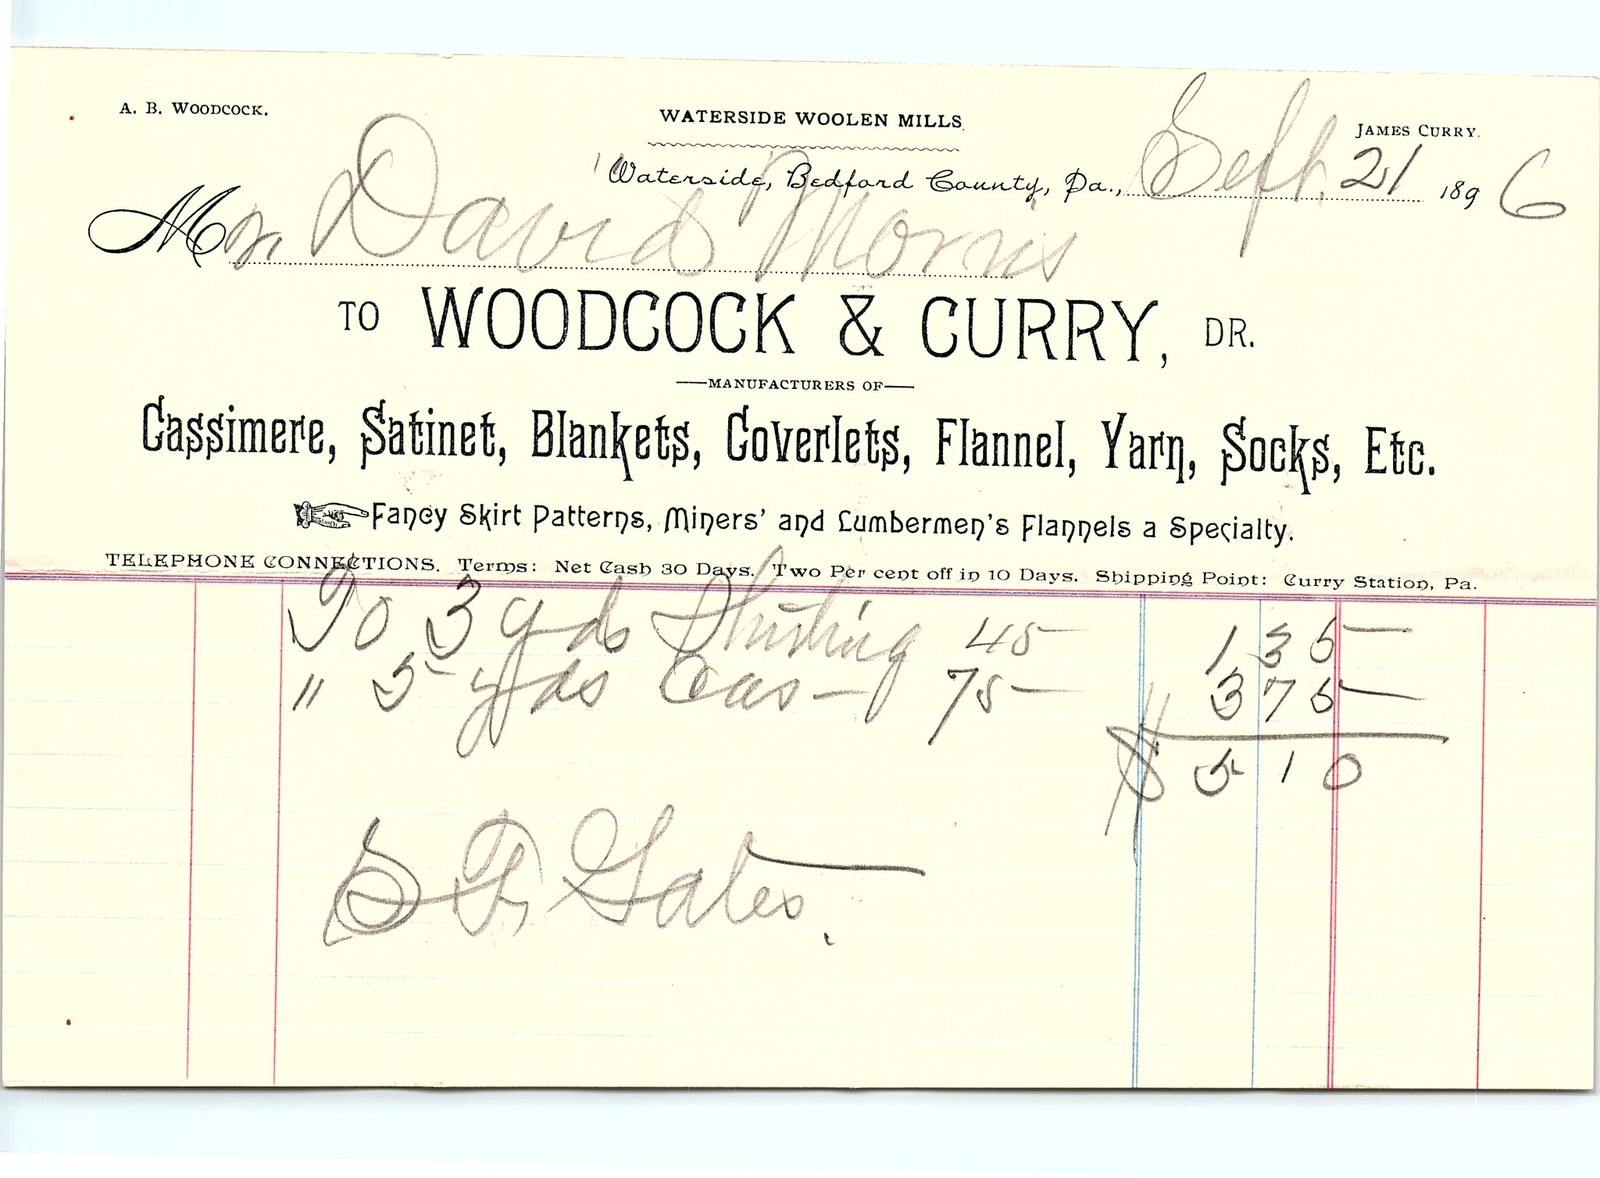 A. B. WOODCOCK.
WATERSIDE WOOLEN MILLS.
JAMES CURRY.
Waterside, Bedford County, Pa., Sept. 21 1896
Mr. David Morris
TO WOODCOCK & CURRY, DR.
MANUFACTURERS OF
Cassimere, Satinet, Blankets, Coverlets, Flannel, Yarn, Socks, Etc.
Fancy Skirt Patterns, Miners' and Lumbermen's Flannels a Specialty.
TELEPHONE CONNECTIONS. Terms: Net Cash 30 Days. Two Per cent off in 10 Days. Shipping Point: Curry Station, Pa.
To 3 yds Shirting 45 1 35
" 5 yds Cas 75 3 75
$ 5 10
S F Gates.